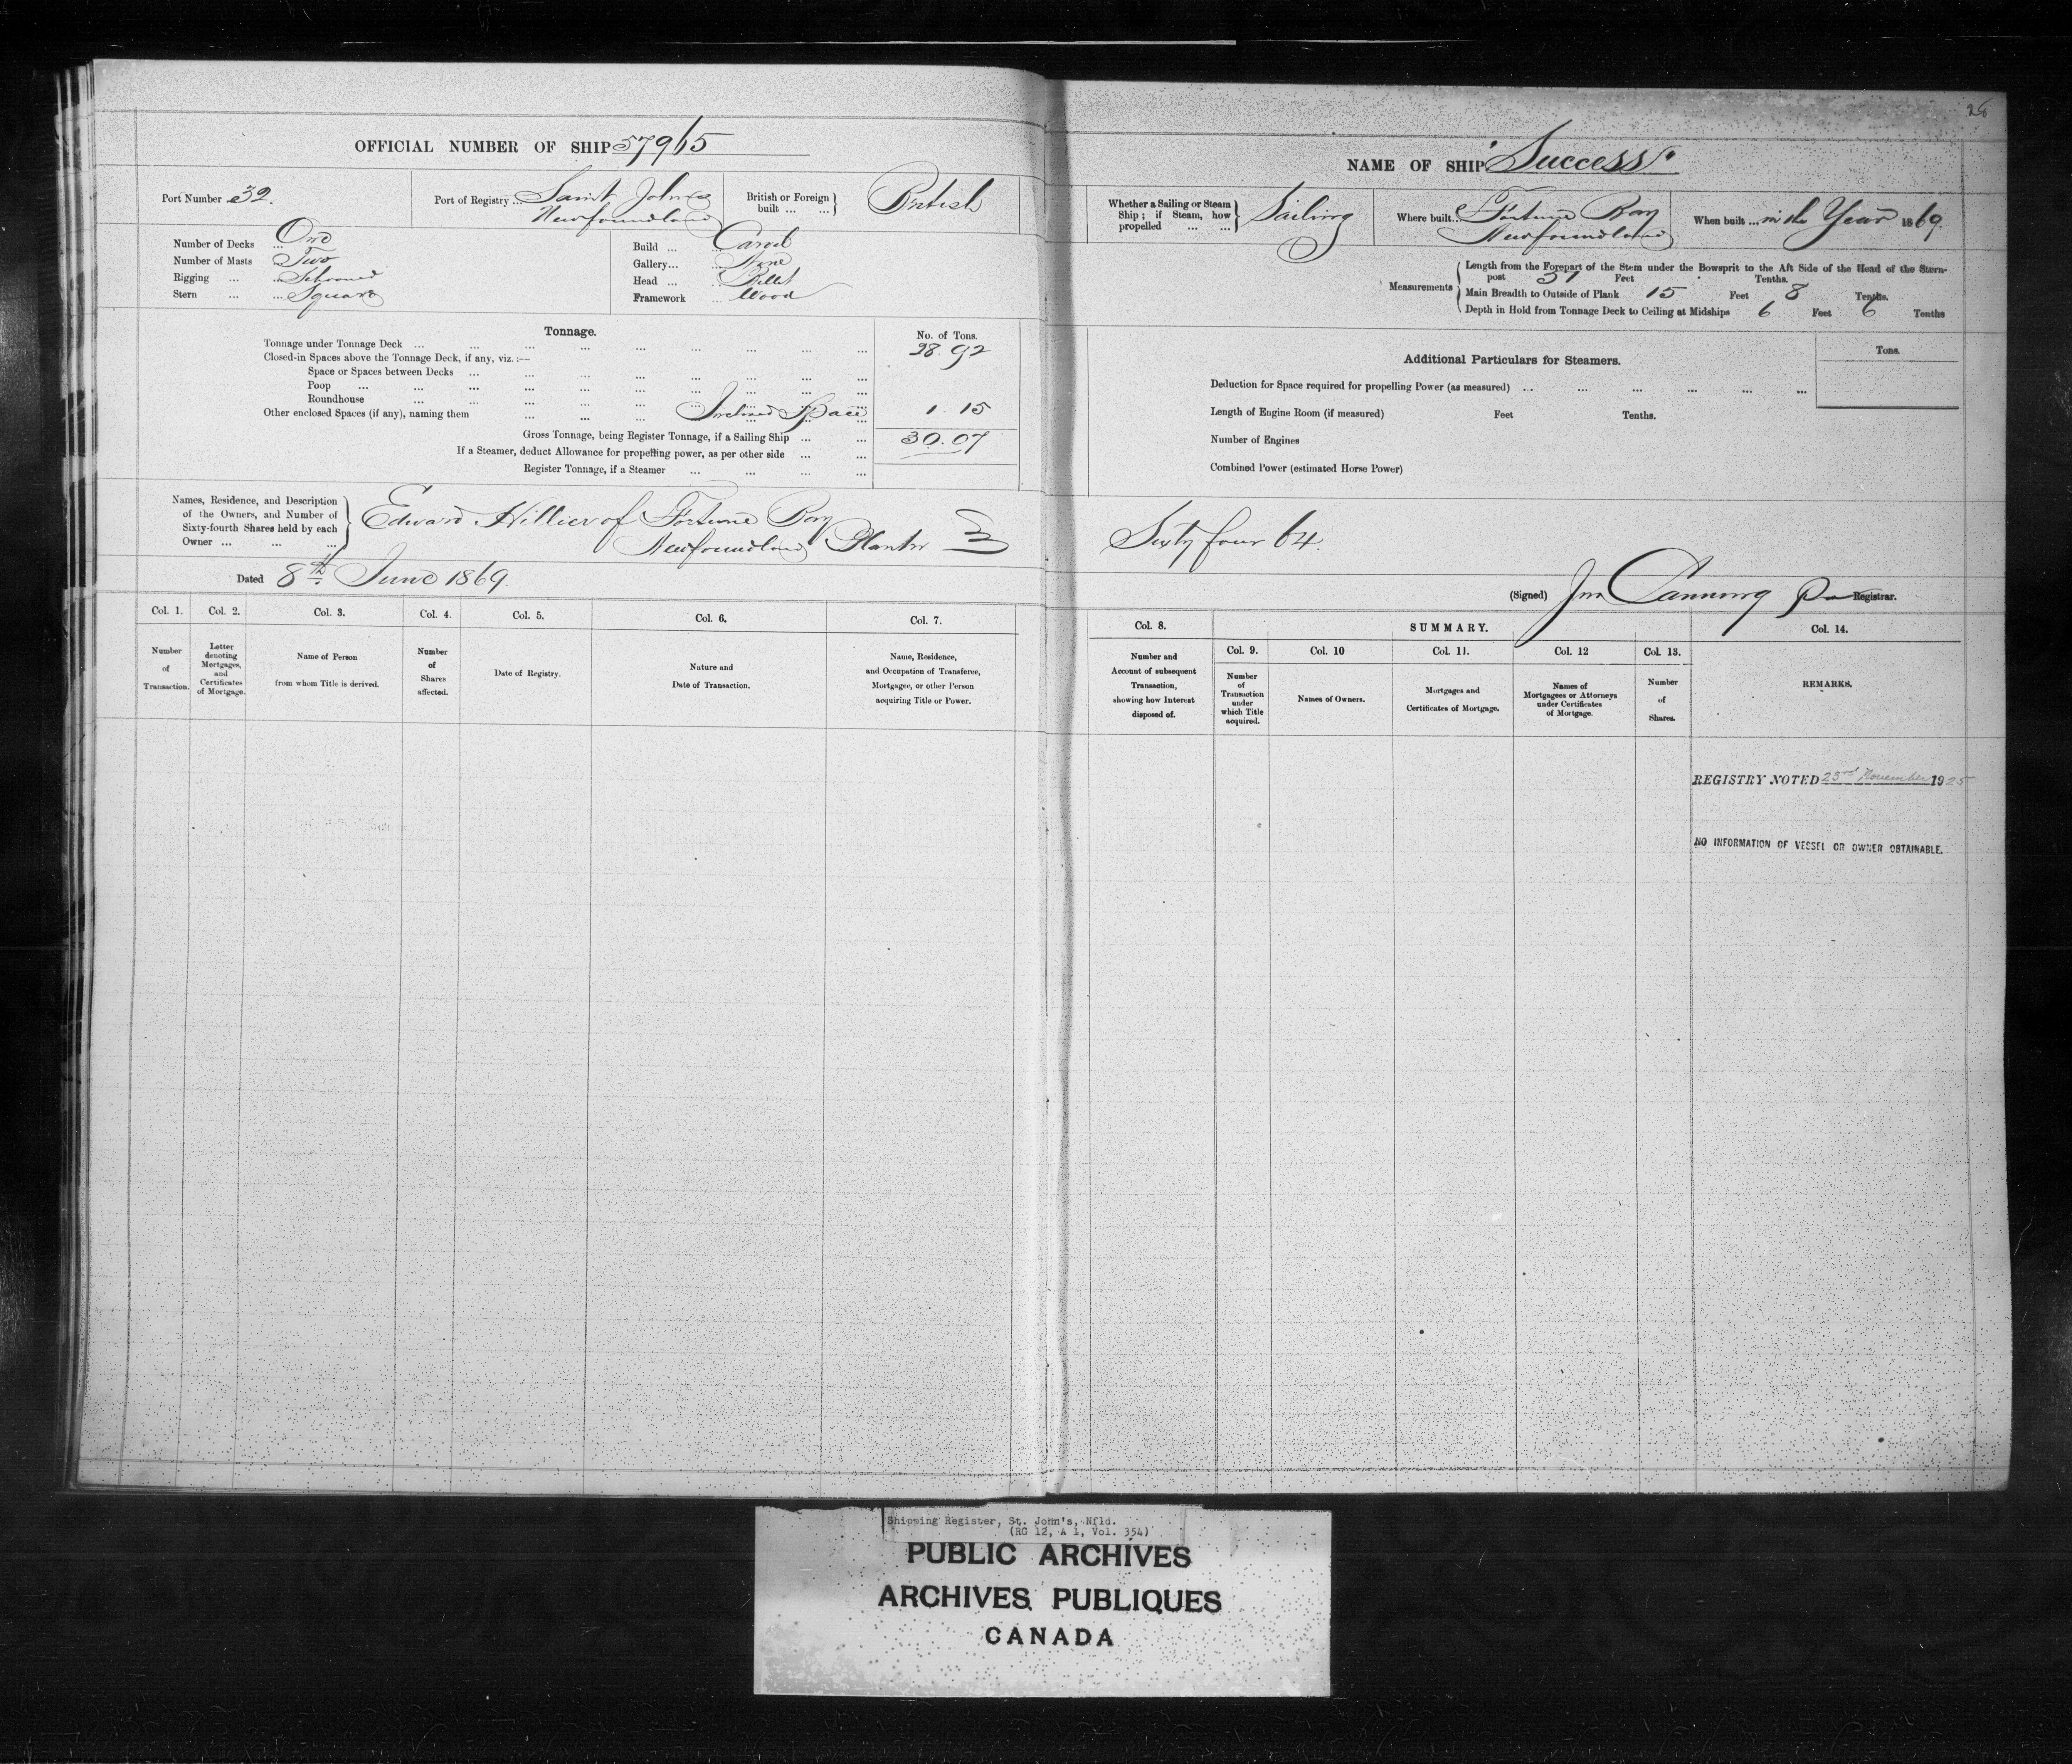 26
OFFICIAL NUMBER OF SHIP 57965
Port Number 32.
Port of Registry ... Saint Johns
Newfoundland
British or Foreign built ... ... British
Number of Decks ... One
Number of Masts ... Two
Rigging ... ... Schooner
Stern ... ... Square
Build ... ... Carvel
Gallery... ... None
Head ... ... Billet
Framework ... Wood
Tonnage.
No. of Tons.
Tonnage under Tonnage Deck ... 28.92
Closed-in Spaces above the Tonnage Deck, if any, viz.:—
Space or Spaces between Decks ...
Poop ...
Roundhouse ...
Other enclosed Spaces (if any), naming them ... Inclosed Space 1.15
Gross Tonnage, being Register Tonnage, if a Sailing Ship ... 30.07
If a Steamer, deduct Allowance for propelling power, as per other side ...
Register Tonnage, if a Steamer ...
Names, Residence, and Description
of the Owners, and Number of
Sixty-fourth Shares held by each
Owner ... ... ...
Edward Hillier of Fortune Bay
Newfoundland Planter
Dated 8th June 1869.
Col. 1. Col. 2. Col. 3. Col. 4. Col. 5. Col. 6. Col. 7.
Number of Transaction.
Letter denoting Mortgages, and Certificates of Mortgage.
Name of Person from whom Title is derived.
Number of Shares affected.
Date of Registry.
Nature and Date of Transaction.
Name, Residence, and Occupation of Transferee, Mortgagee, or other Person acquiring Title or Power.
NAME OF SHIP "Success"
Whether a Sailing or Steam Ship; if Steam, how propelled ... ... Sailing
Where built... Fortune Bay
Newfoundland
When built ... in the Year 1869.
Measurements
Length from the Forepart of the Stem under the Bowsprit to the Aft Side of the Head of the Stern-
post 51 Feet . Tenths.
Main Breadth to Outside of Plank 15 Feet 8 Tenths.
Depth in Hold from Tonnage Deck to Ceiling at Midships 6 Feet 6 Tenths
Additional Particulars for Steamers.
Tons.
Deduction for Space required for propelling Power (as measured) ...
Length of Engine Room (if measured) Feet Tenths.
Number of Engines
Combined Power (estimated Horse Power)
Sixty four 64.
(Signed) Jno Canning Registrar.
Col. 8. SUMMARY. Col. 14.
Col. 9. Col. 10 Col. 11. Col. 12 Col. 13.
Number and Account of subsequent Transaction, showing how Interest disposed of.
Number of Transaction under which Title acquired.
Names of Owners.
Mortgages and Certificates of Mortgage.
Names of Mortgagees or Attorneys under Certificates of Mortgage.
Number of Shares.
REMARKS.
REGISTRY NOTED 23rd November 1925
NO INFORMATION OF VESSEL OR OWNER OBTAINABLE.
Shipping Register, St. John's, Nfld.
(RG 12, A 1, Vol. 354)
PUBLIC ARCHIVES
ARCHIVES PUBLIQUES
CANADA